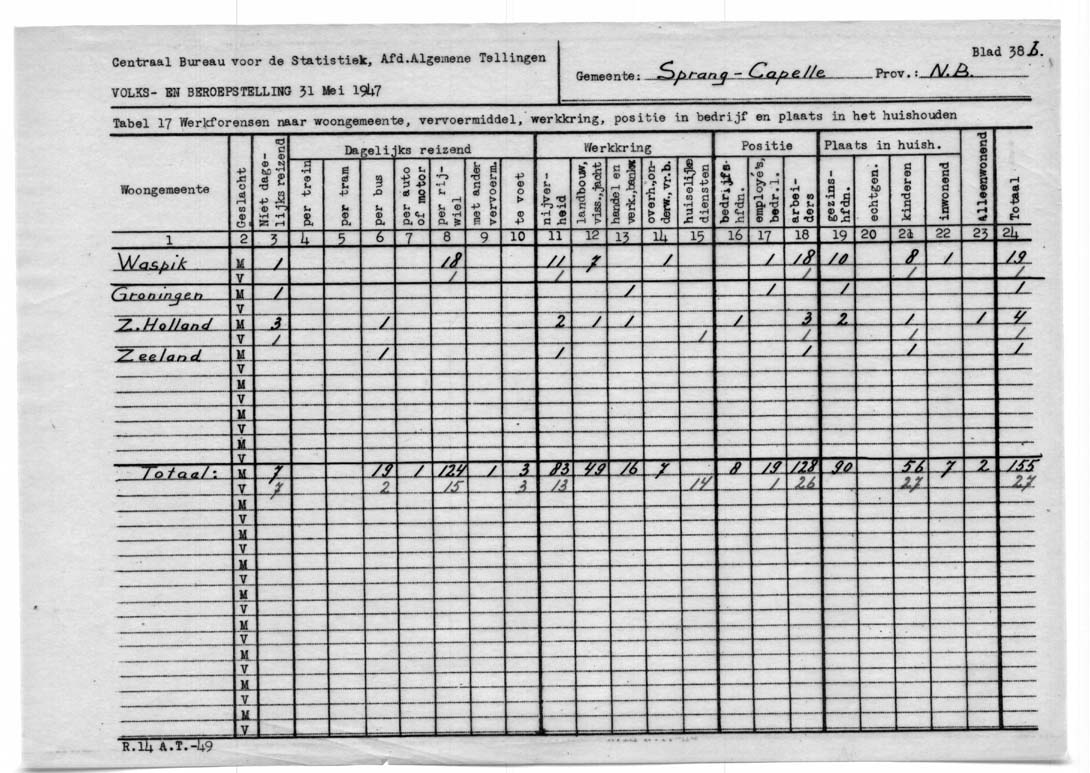 Centraal Bureau voor de Statistiek, Afd.Algemene Tellingen
VOLKS- EN BEROEPSTELLING 31 Mei 1947
Blad 38 b.
Gemeente: Sprang-Capelle Prov.: N.B.
Tabel 17 Werkforensen naar woongemeente, vervoermiddel, werkkring, positie in bedrijf en plaats in het huishouden
Woongemeente
Geslacht
Niet dage-
lijks reizend
Dagelijks reizend
per trein
per tram
per bus
per auto
of motor
per rij-
wiel
met ander
vervoerm.
te voet
Werkkring
nijver-
heid
landbouw,
viss.,jacht
handel en
verk.,bankw
overh.,on-
derw.vr.b.
huiselijke
diensten
Positie
bedrijfs-
hfdn.
employé's,
bedr.l.
arbei-
ders
Plaats in huish.
gezins-
hfdn.
echtgen.
kinderen
inwonend
Alleenwonend
Totaal
1 2 3 4 5 6 7 8 9 10 11 12 13 14 15 16 17 18 19 20 21 22 23 24
Waspik M 1 18 11 7 1 1 18 10 8 1 19
V 1 1 1 1 1
Groningen M 1 1 1 1 1
V
Z.Holland M 3 1 2 1 1 1 3 2 1 1 4
V 1 1 1 1 1
Zeeland M 1 1 1 1 1
V
M
V
M
V
M
V
Totaal: M 7 19 1 124 1 3 83 49 16 7 8 19 128 90 56 7 2 155
V 7 2 15 3 13 14 1 26 27 27
M
V
M
V
M
V
M
V
M
V
M
V
M
V
M
V
R.14 A.T.-49